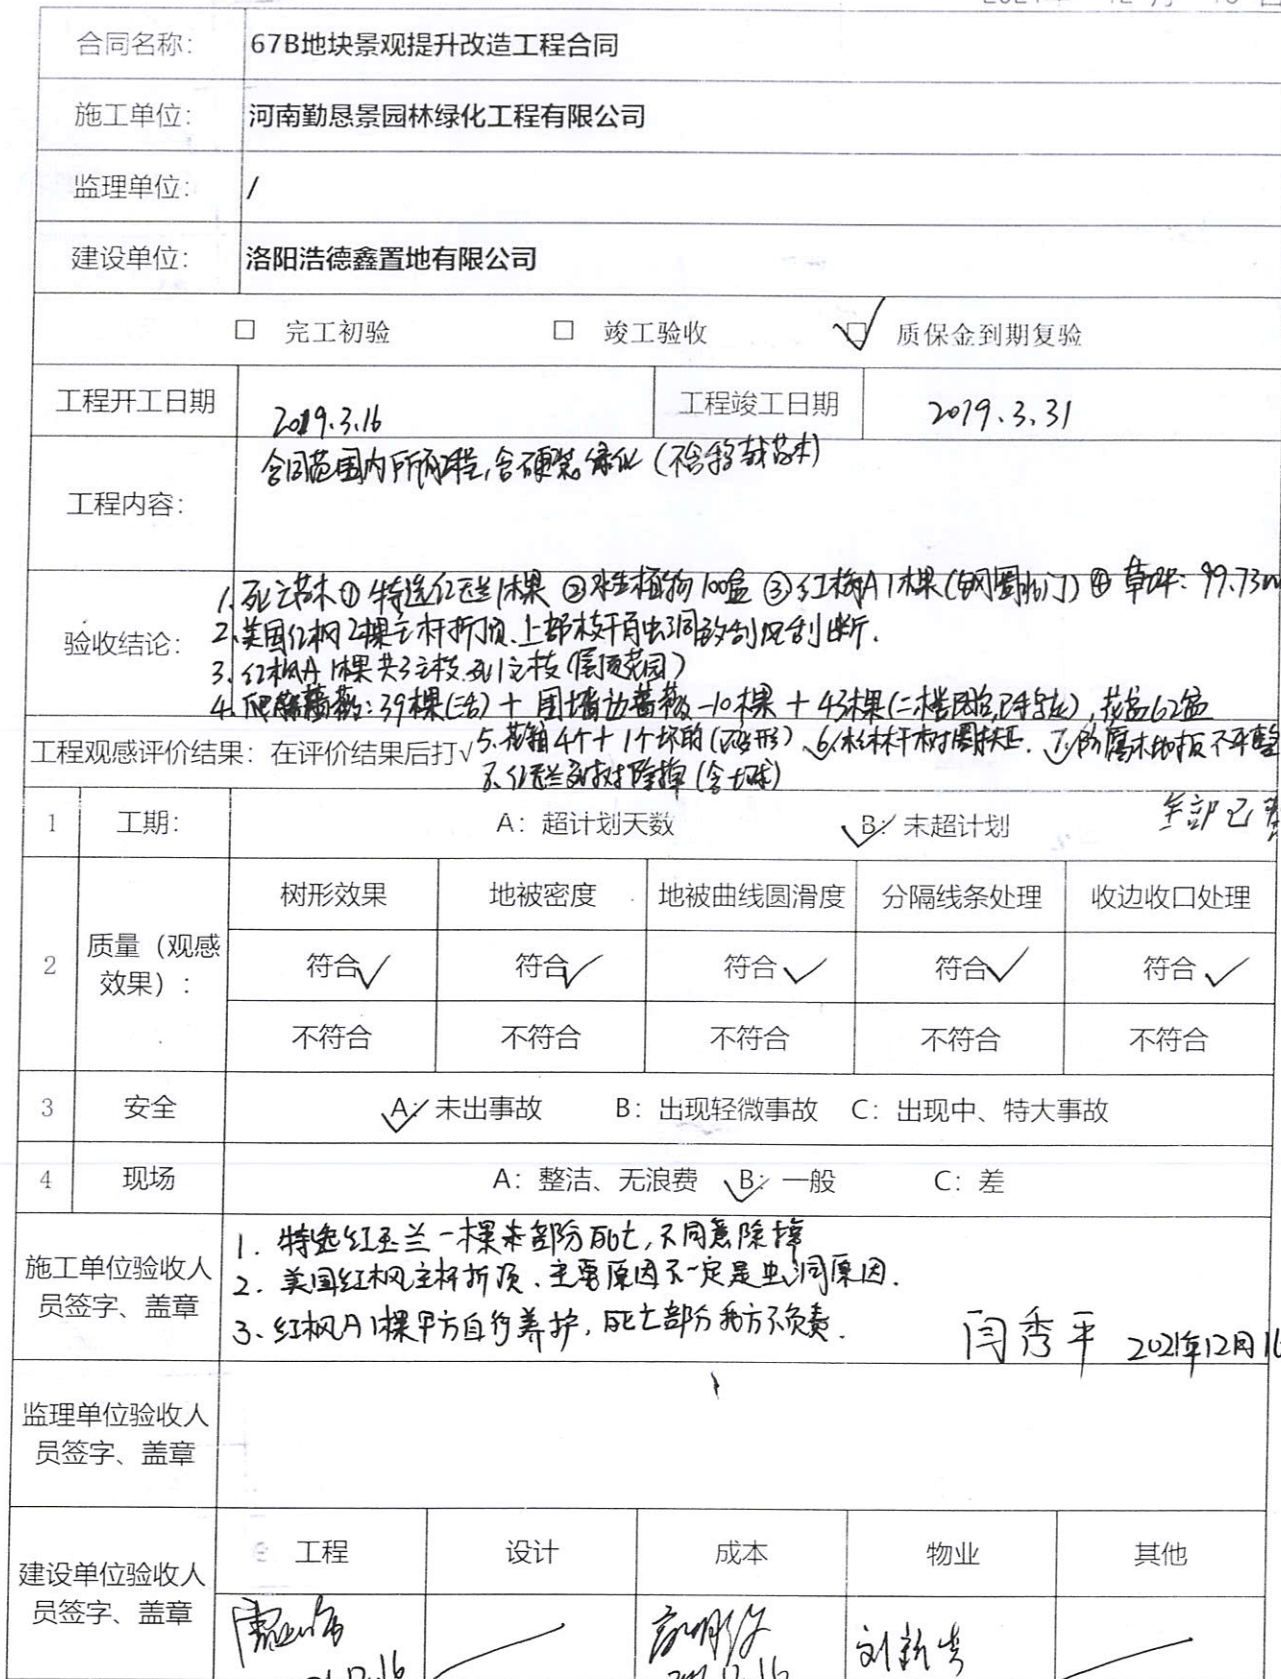 合同名称： 67B地块景观提升改造工程合同
施工单位： 河南勤恳景园林绿化工程有限公司
监理单位： /
建设单位： 洛阳浩德鑫置地有限公司
□ 完工初验 □ 竣工验收 ☑ 质保金到期复验
工程开工日期 2019.3.16 工程竣工日期 2019.3.31
工程内容： 合同范围内所有工程,含硬装,绿化(不含移栽苗木)
验收结论：
1. 死亡苗木① 特选红玉兰1棵 ②水生植物100盆 ③红梅A1棵(钢圈 门) ④草坪: 99.73m
2. 美国红枫2棵主杆折顶、上部枝干有虫洞 刮断.
3. 红枫A 1棵共3主枝,死1主枝(屋顶花园)
4. 爬藤蔷薇: 39棵(活) + 围墙边蔷薇-10棵 + 43棵(二楼 ), 花盆62盆
工程观感评价结果：在评价结果后打√
5. 花箱4个+1个坏的(已变形) 6. 杉木杆树围 . 7. 防腐木地板不平整
8. 红玉兰 树除掉(含土球)
全部已
1 工期： A：超计划天数 √B：未超计划
2 质量（观感效果）： 树形效果 地被密度 地被曲线圆滑度 分隔线条处理 收边收口处理
符合√ 符合√ 符合√ 符合√ 符合√
不符合 不符合 不符合 不符合 不符合
3 安全 √A：未出事故 B：出现轻微事故 C：出现中、特大事故
4 现场 A：整洁、无浪费 √B：一般 C：差
施工单位验收人员签字、盖章
1. 特选红玉兰一棵未部分死亡,不同意除掉
2. 美国红枫主杆折顶、主要原因不一定是虫洞原因.
3. 红枫A1棵甲方自行养护, 死亡部分我方不负责.
闫秀平 2021年12月16
监理单位验收人员签字、盖章
建设单位验收人员签字、盖章 工程 设计 成本 物业 其他
刘新